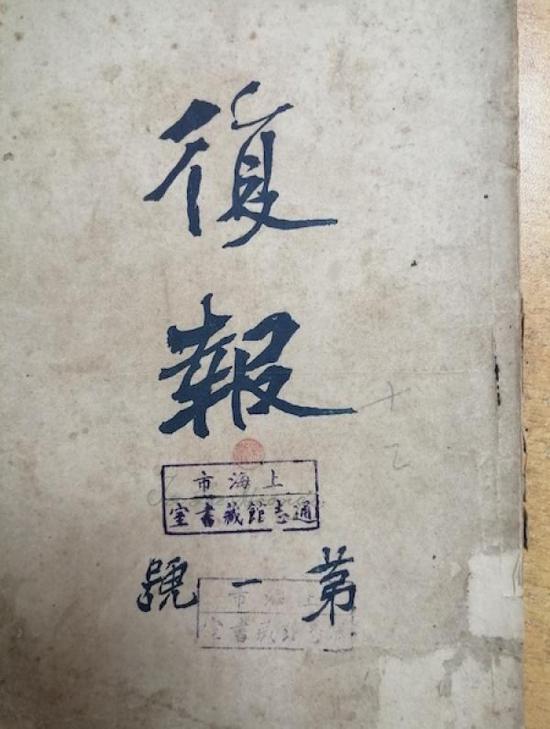 復
報
上海市
通志館藏書室
第一號
上海市
藏書室